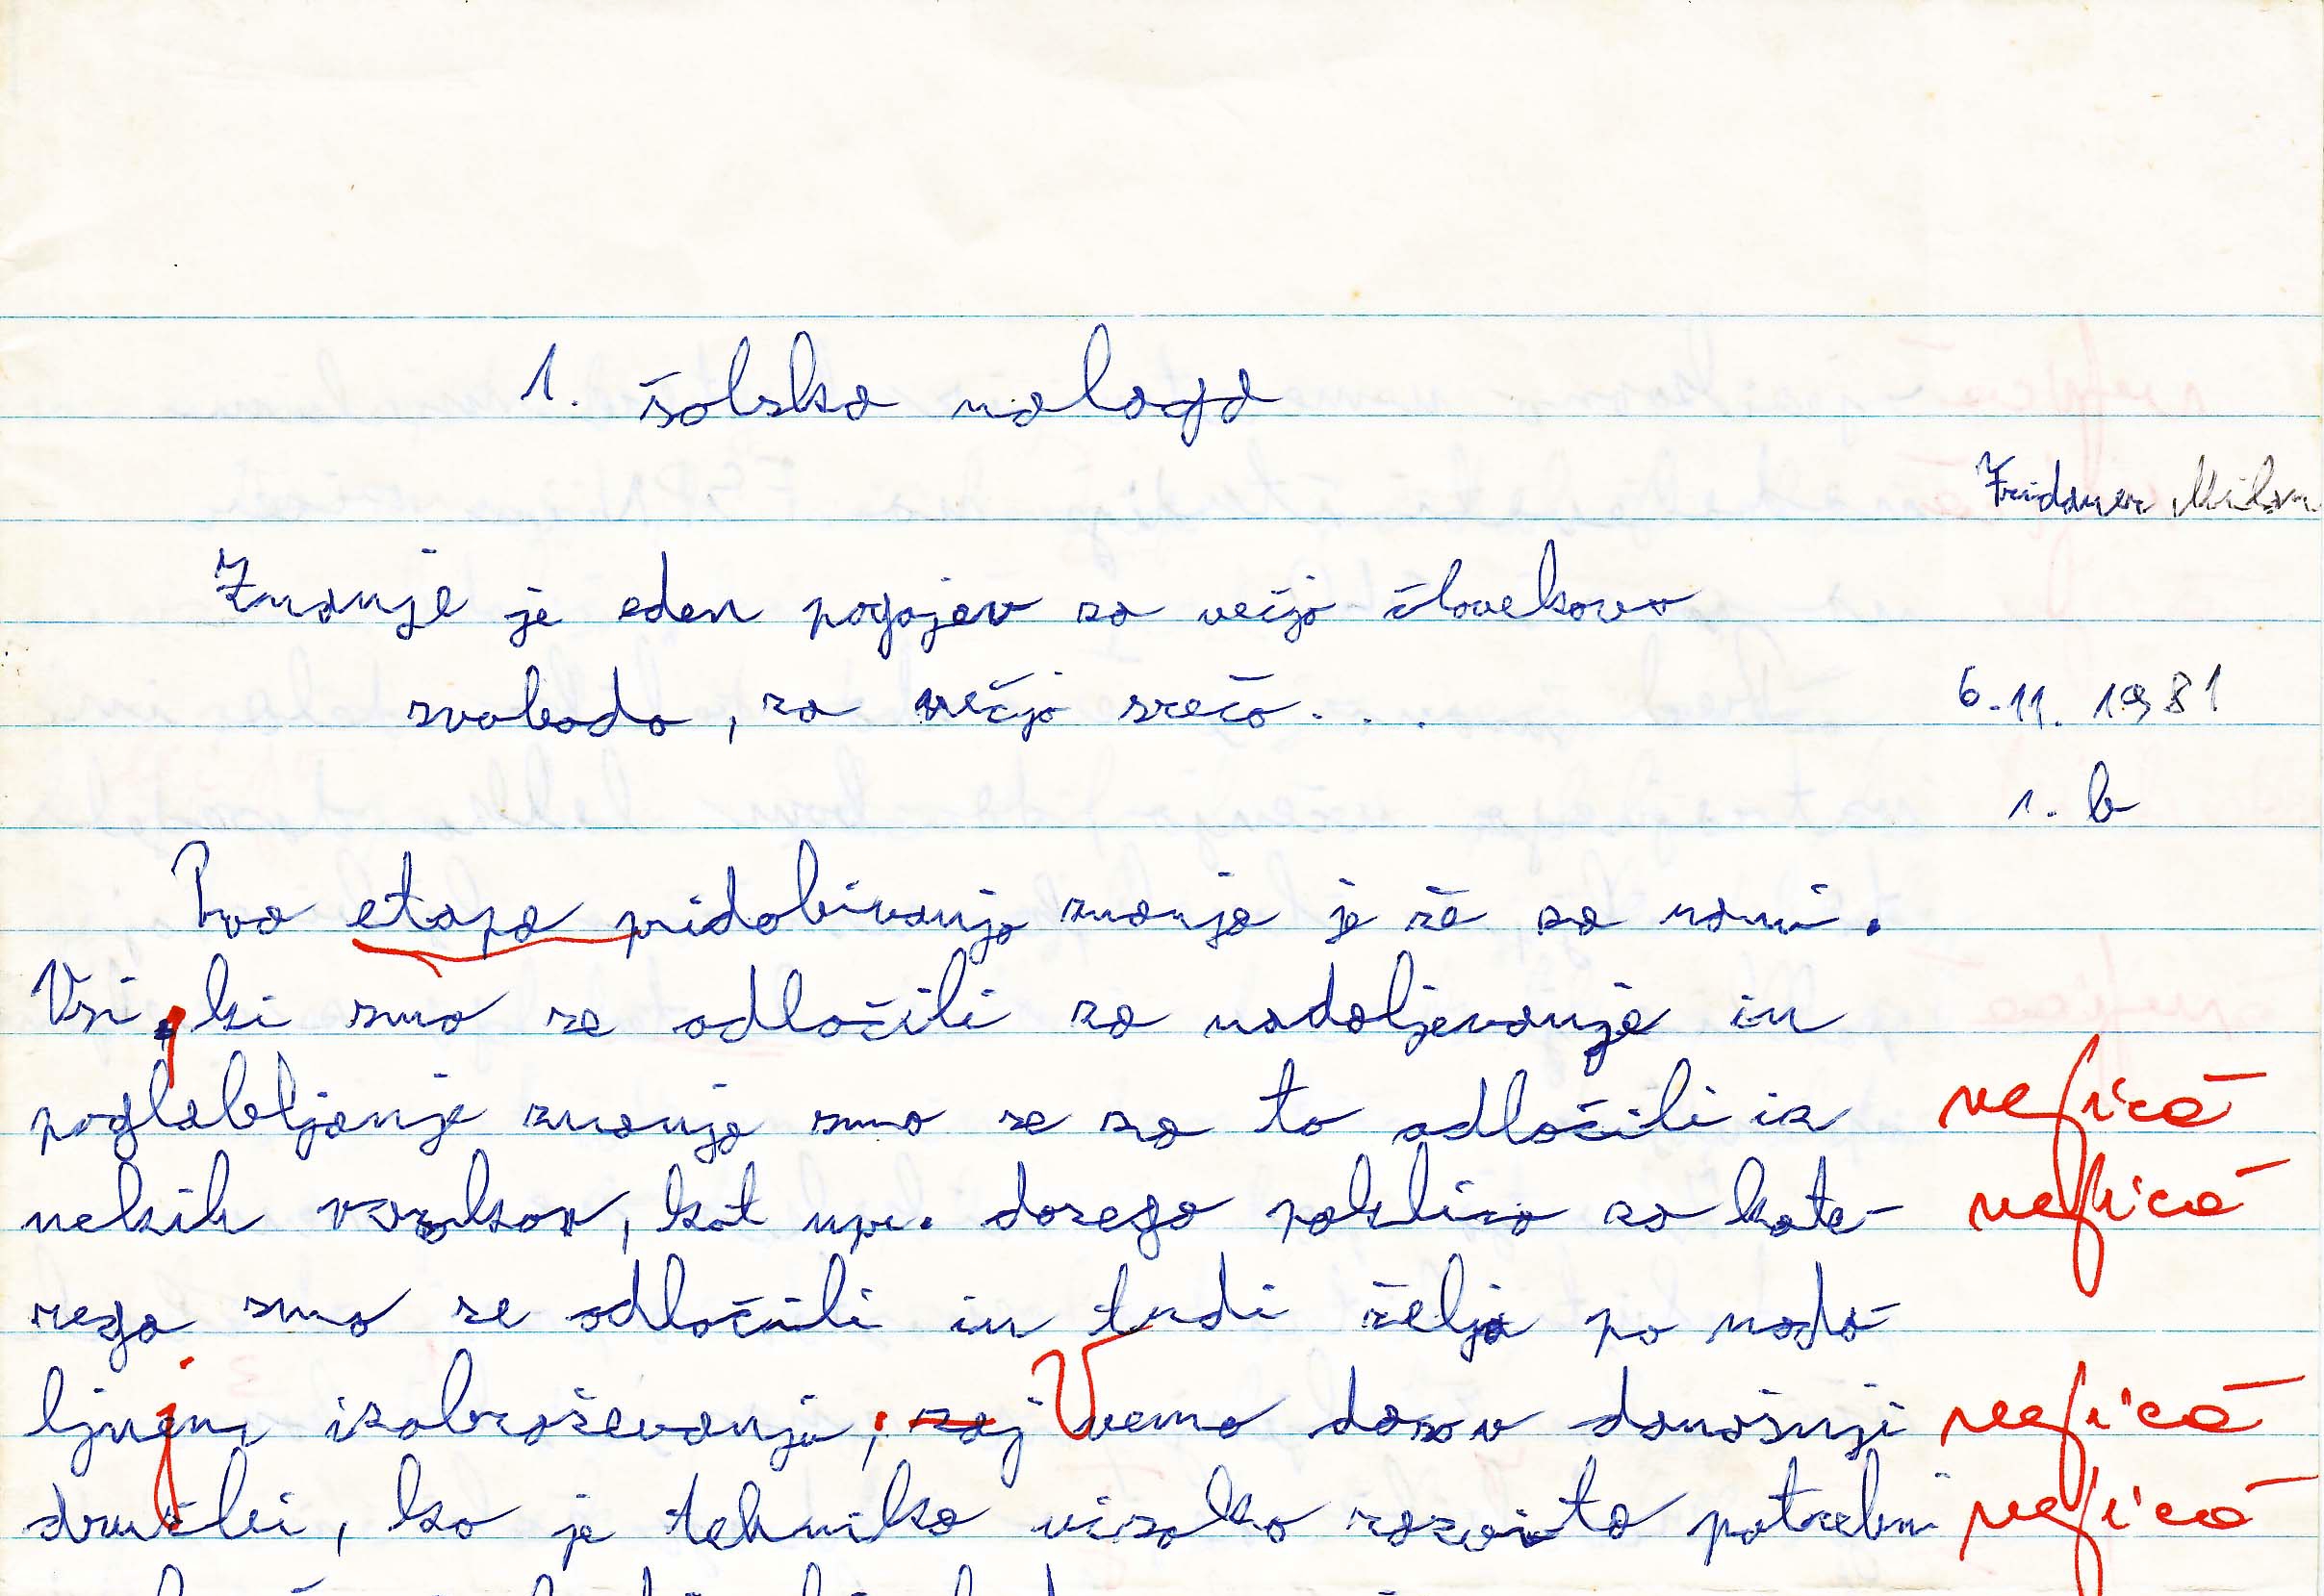 1. šolska naloga
Žnidaner Milan
Znanje je eden pogojev za večjo človekovo
svobodo, za večjo srečo...
6.11.1981
1. b
Prva etapa pridobivanja znanja je že za nami.
Vsi, ki smo se odločili za nadaljevanje in
poglabljanje znanja smo se za to odločili iz
nekih vzrokov, kot npr. dosega poklica za kate-
rega smo se odločili in tudi želja po nada-
ljnjem izobraževanju; saj Vemo da so v današnji
družbi, ko je tehnika visoko razvita potrebni